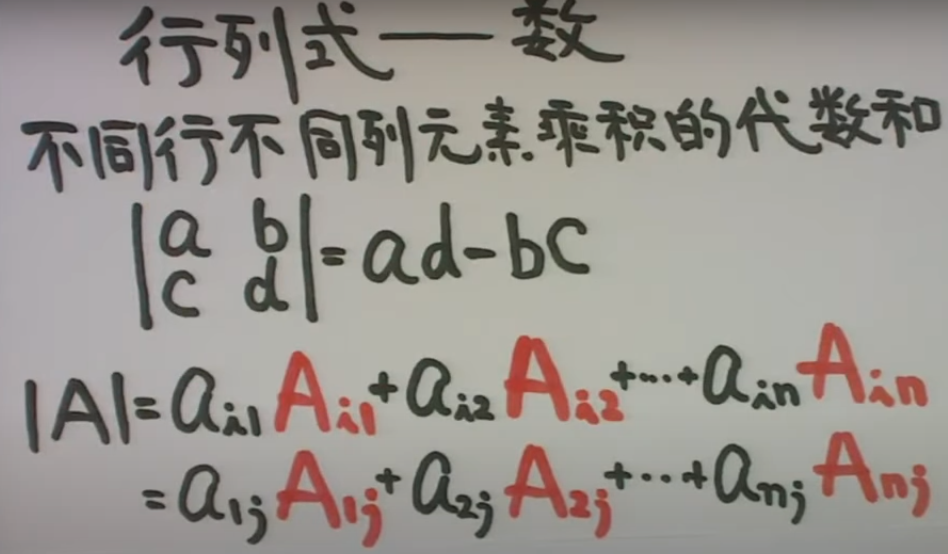 行列式——数
不同行不同列元素乘积的代数和
|a b|
|c d| = ad-bc
|A| = a_{i1} A_{i1} + a_{i2} A_{i2} + ... + a_{in} A_{in}
= a_{1j} A_{1j} + a_{2j} A_{2j} + ... + a_{nj} A_{nj}